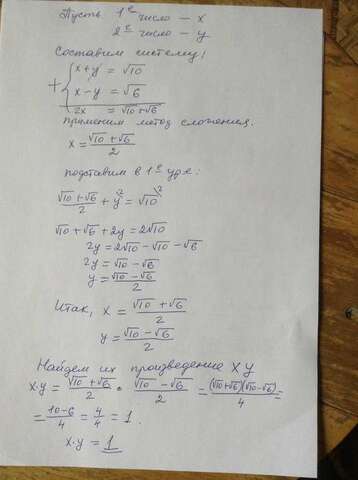 Пусть 1е число – x
2е число – y
Составим систему:
+ { x+y = √10
x-y = √6
2x = √10+√6
применим метод сложения.
x = (√10+√6)/2
подставим в 1е ур-е:
(√10+√6)/2 + y^2 = √10^2
√10+√6+2y = 2√10
2y = 2√10-√10-√6
2y = √10-√6
y = (√10-√6)/2
Итак, x = (√10+√6)/2
y = (√10-√6)/2
Найдем их произведение xy
x·y = (√10+√6)/2 · (√10-√6)/2 = (√10+√6)(√10-√6)/4 =
= (10-6)/4 = 4/4 = 1.
x·y = 1